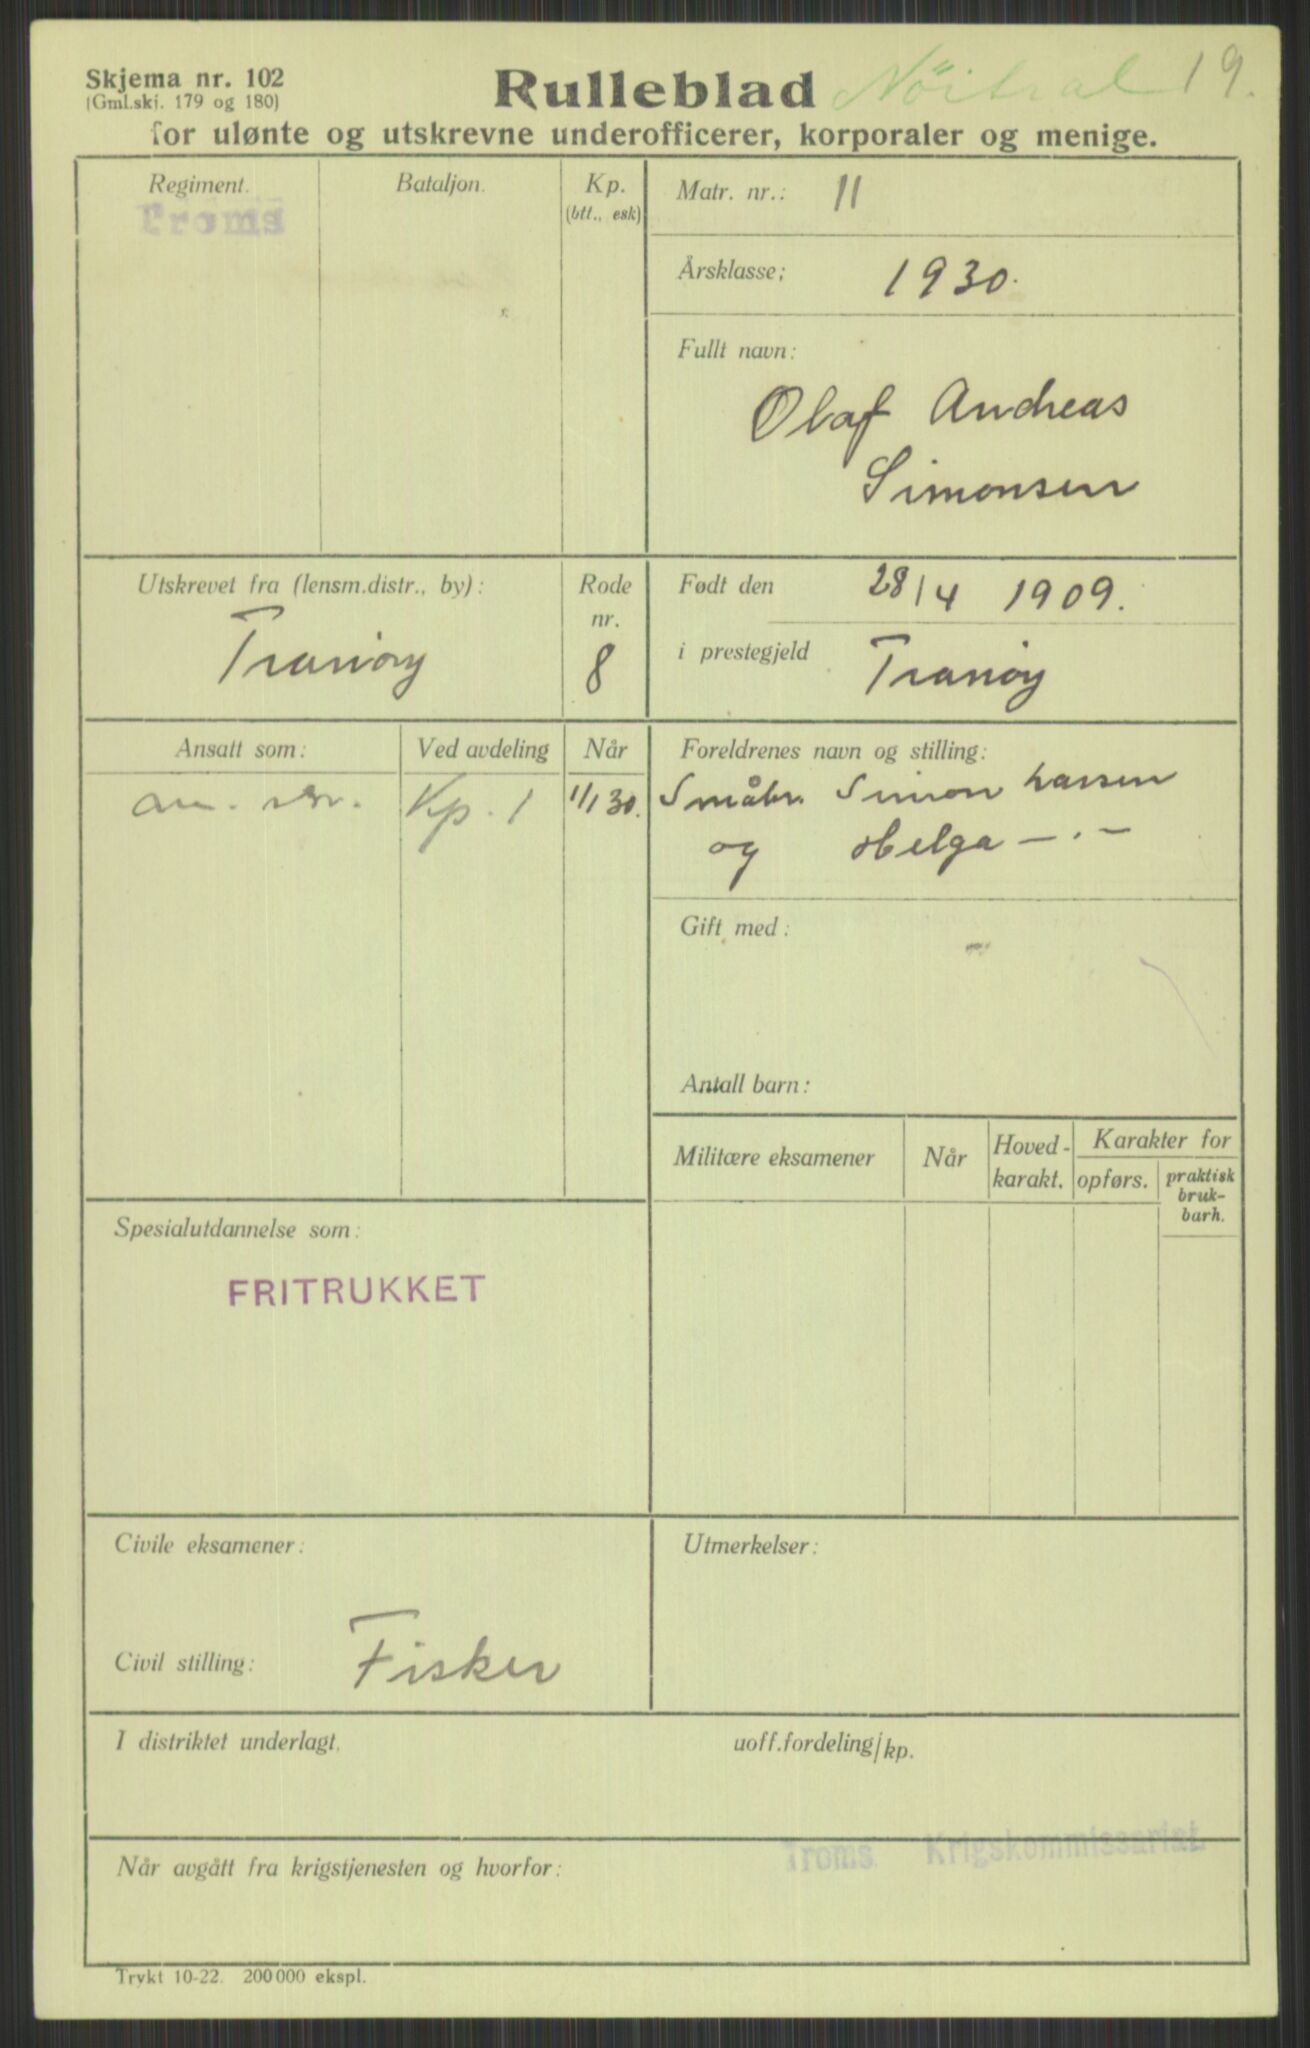 Skjema nr. 102
(Gml.skj. 179 og 180)
Rulleblad Nöitral 19.
for ulønte og utskrevne underofficerer, korporaler og menige.
Regiment. Bataljon. Kp.
(btt., esk)
Troms
Matr. nr.: 11
Årsklasse: 1930.
Fullt navn:
Olaf Andreas
Simonsen
Utskrevet fra (lensm.distr., by):
Tranöy
Rode
nr.
8
Født den 28/4 1909.
i prestegjeld Tranöy
Ansatt som: Ved avdeling Når
Kp. 1 1/1 30.
Foreldrenes navn og stilling:
Småbr. Simon Larsen
og Helga — . —
Gift med:
Antall barn:
Militære eksamener Når Hoved-
karakt. Karakter for
opførs. praktisk
bruk-
barh.
Spesialutdannelse som:
FRITRUKKET
Civile eksamener:
Civil stilling: Fisker
Utmerkelser:
I distriktet underlagt. uoff.fordeling/kp.
Troms Krigskommissariat
Når avgått fra krigstjenesten og hvorfor:
Trykt 10-22. 200 000 ekspl.